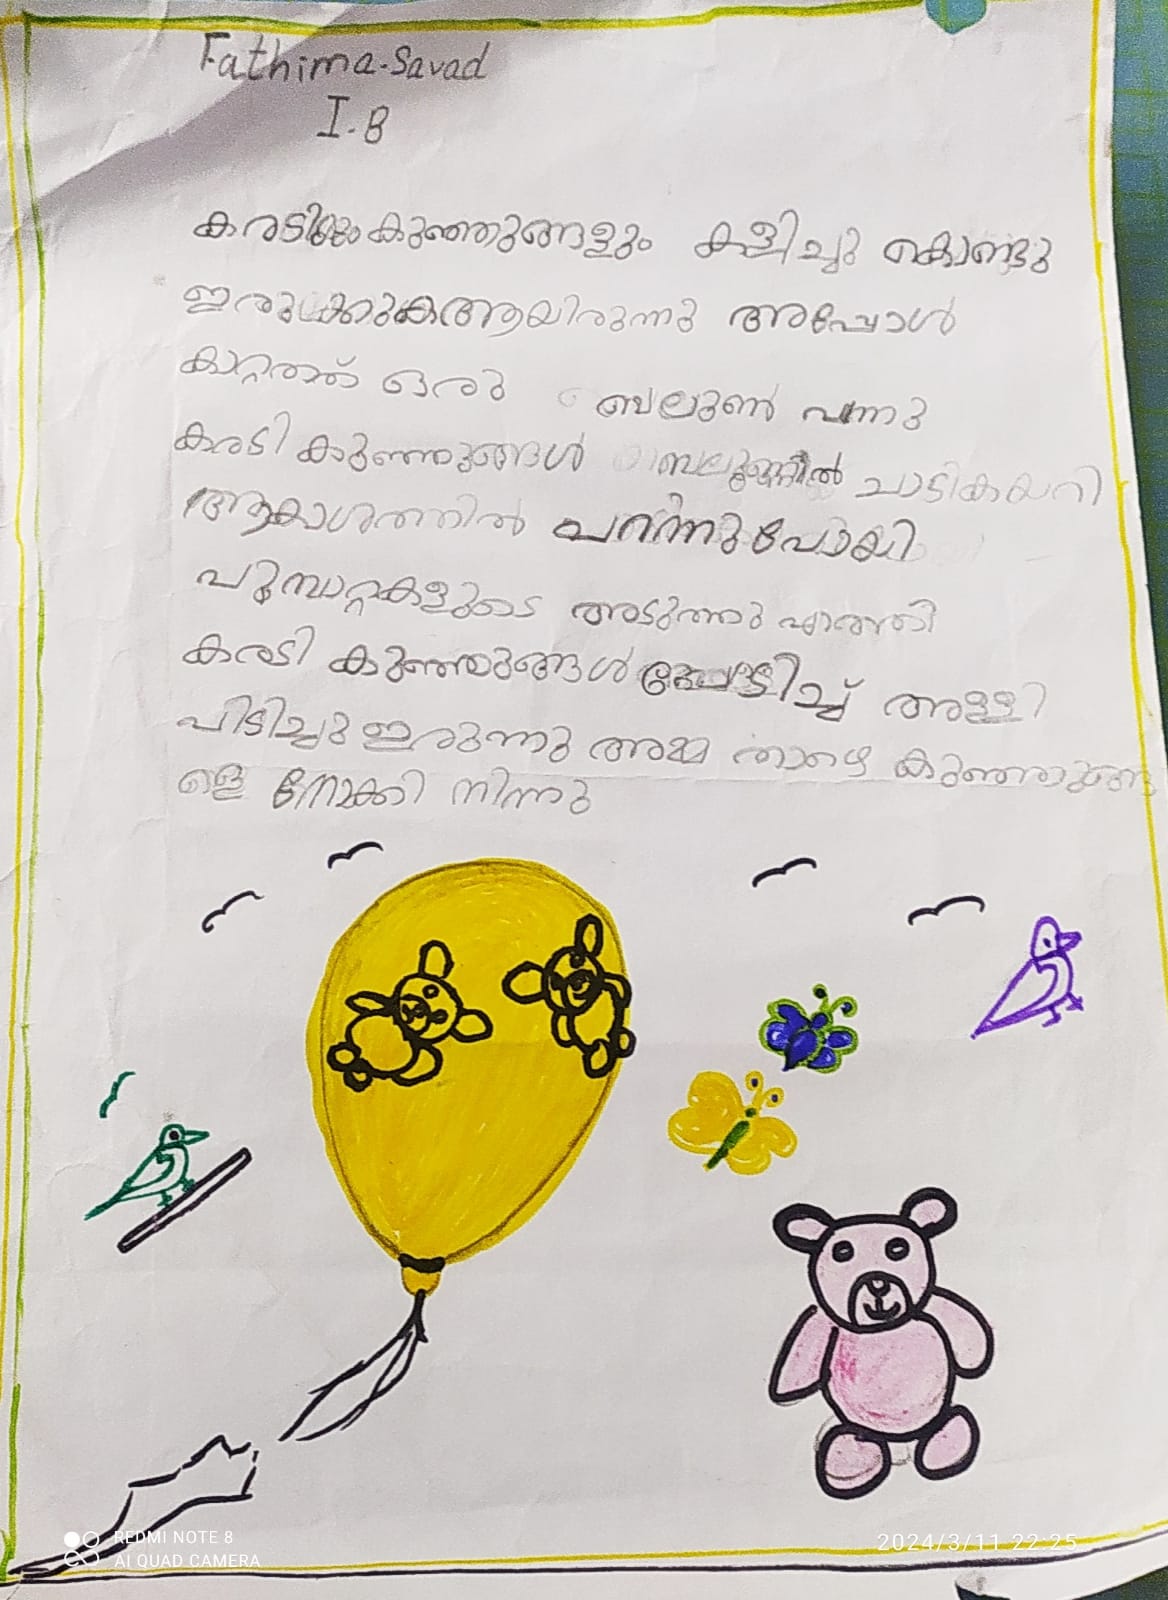 Fathima-Savad
I-B
കരടിയും കുഞ്ഞുങ്ങളും കളിച്ചു കൊണ്ടു
ഇരുക്കുകആയിരുന്നു അപ്പോൾ
കാറ്റത്ത് ഒരു ബലൂൺ വന്നു
കരടി കുഞ്ഞുങ്ങൾ ബലൂണിൽ ചാടികയറി
ആകാശത്തിൽ പറന്നുപോയി
പൂമ്പാറ്റകളുടെ അടുത്തു എത്തി
കരടി കുഞ്ഞുങ്ങൾ പേടിച്ച് അള്ളി
പിടിച്ചു ഇരുന്നു അമ്മ താഴെ കുഞ്ഞുങ്ങ
ളെ നോക്കി നിന്നു
REDMI NOTE 8
AI QUAD CAMERA
2024/3/11 22:25